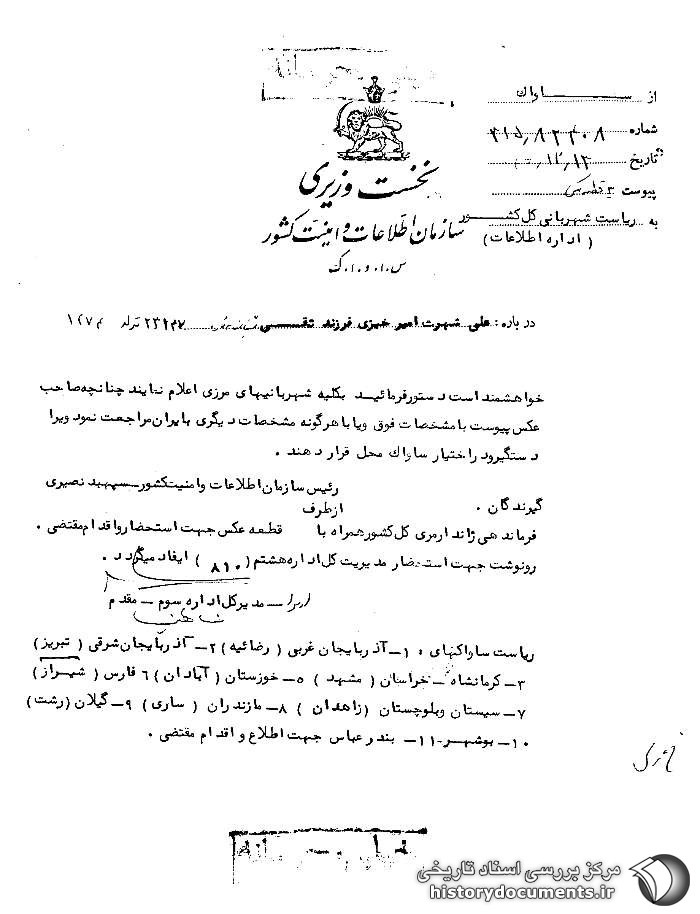 از ســـــاواك
شماره ۳۱۵/۸۲۳۰۸
تاریخ
پیوست
به ریاست شهربانی کل کشـــور
(اداره اطلاعات)
نخست وزیری
سازمان اطلاعات و امنیت کشور
س.ا.و.ا.ک
در باره : علی شهرت امیر خیزی فرزند تقـــی
خواهشمند است دستورفرمائیـد بکلیه شهربانیهای مرزی اعلام نمایند چنانچه صاحب
عکس پیوست با مشخصات فوق ویا با هرگونه مشخصات دیگری بایران مراجعت نمود ویرا
دستگیرود راختیار ساواك محل قرار دهند .
رئیس سازمان اطلاعات وامنیت کشورـ سپهبد نصیری
گیرندگان .
ازطرف
فرماندهی ژاندارمری کل کشور همراه با قطعه عکس جهت استحضارواقدام مقتضی .
رونوشت جهت استحضار مدیریت کل اداره هشتم ( ۸۱۰ ) ایفاد میگردد .
ـ مدیرکل اداره سوم ـ مقدم
ریاست ساواکهای : ۱ـ آذربایجان غربی ( رضائیه ) ۲ـ آذربایجان شرقی ( تبریز )
۳ـ کرمانشاه ـ خراسان ( مشهد ) ۵ـ خوزستان ( آبادان ) ۶ فارس ( شیراز )
۷ـ سیستان وبلوچستان ( زاهدان ) ۸ـ مازندران ( ساری ) ۹ـ گیلان ( رشت )
۱۰ـ بوشهر ـ ۱۱ـ بندرعباس جهت اطلاع و اقدام مقتضی .
مرکز بررسی اسناد تاریخی
historydocuments.ir